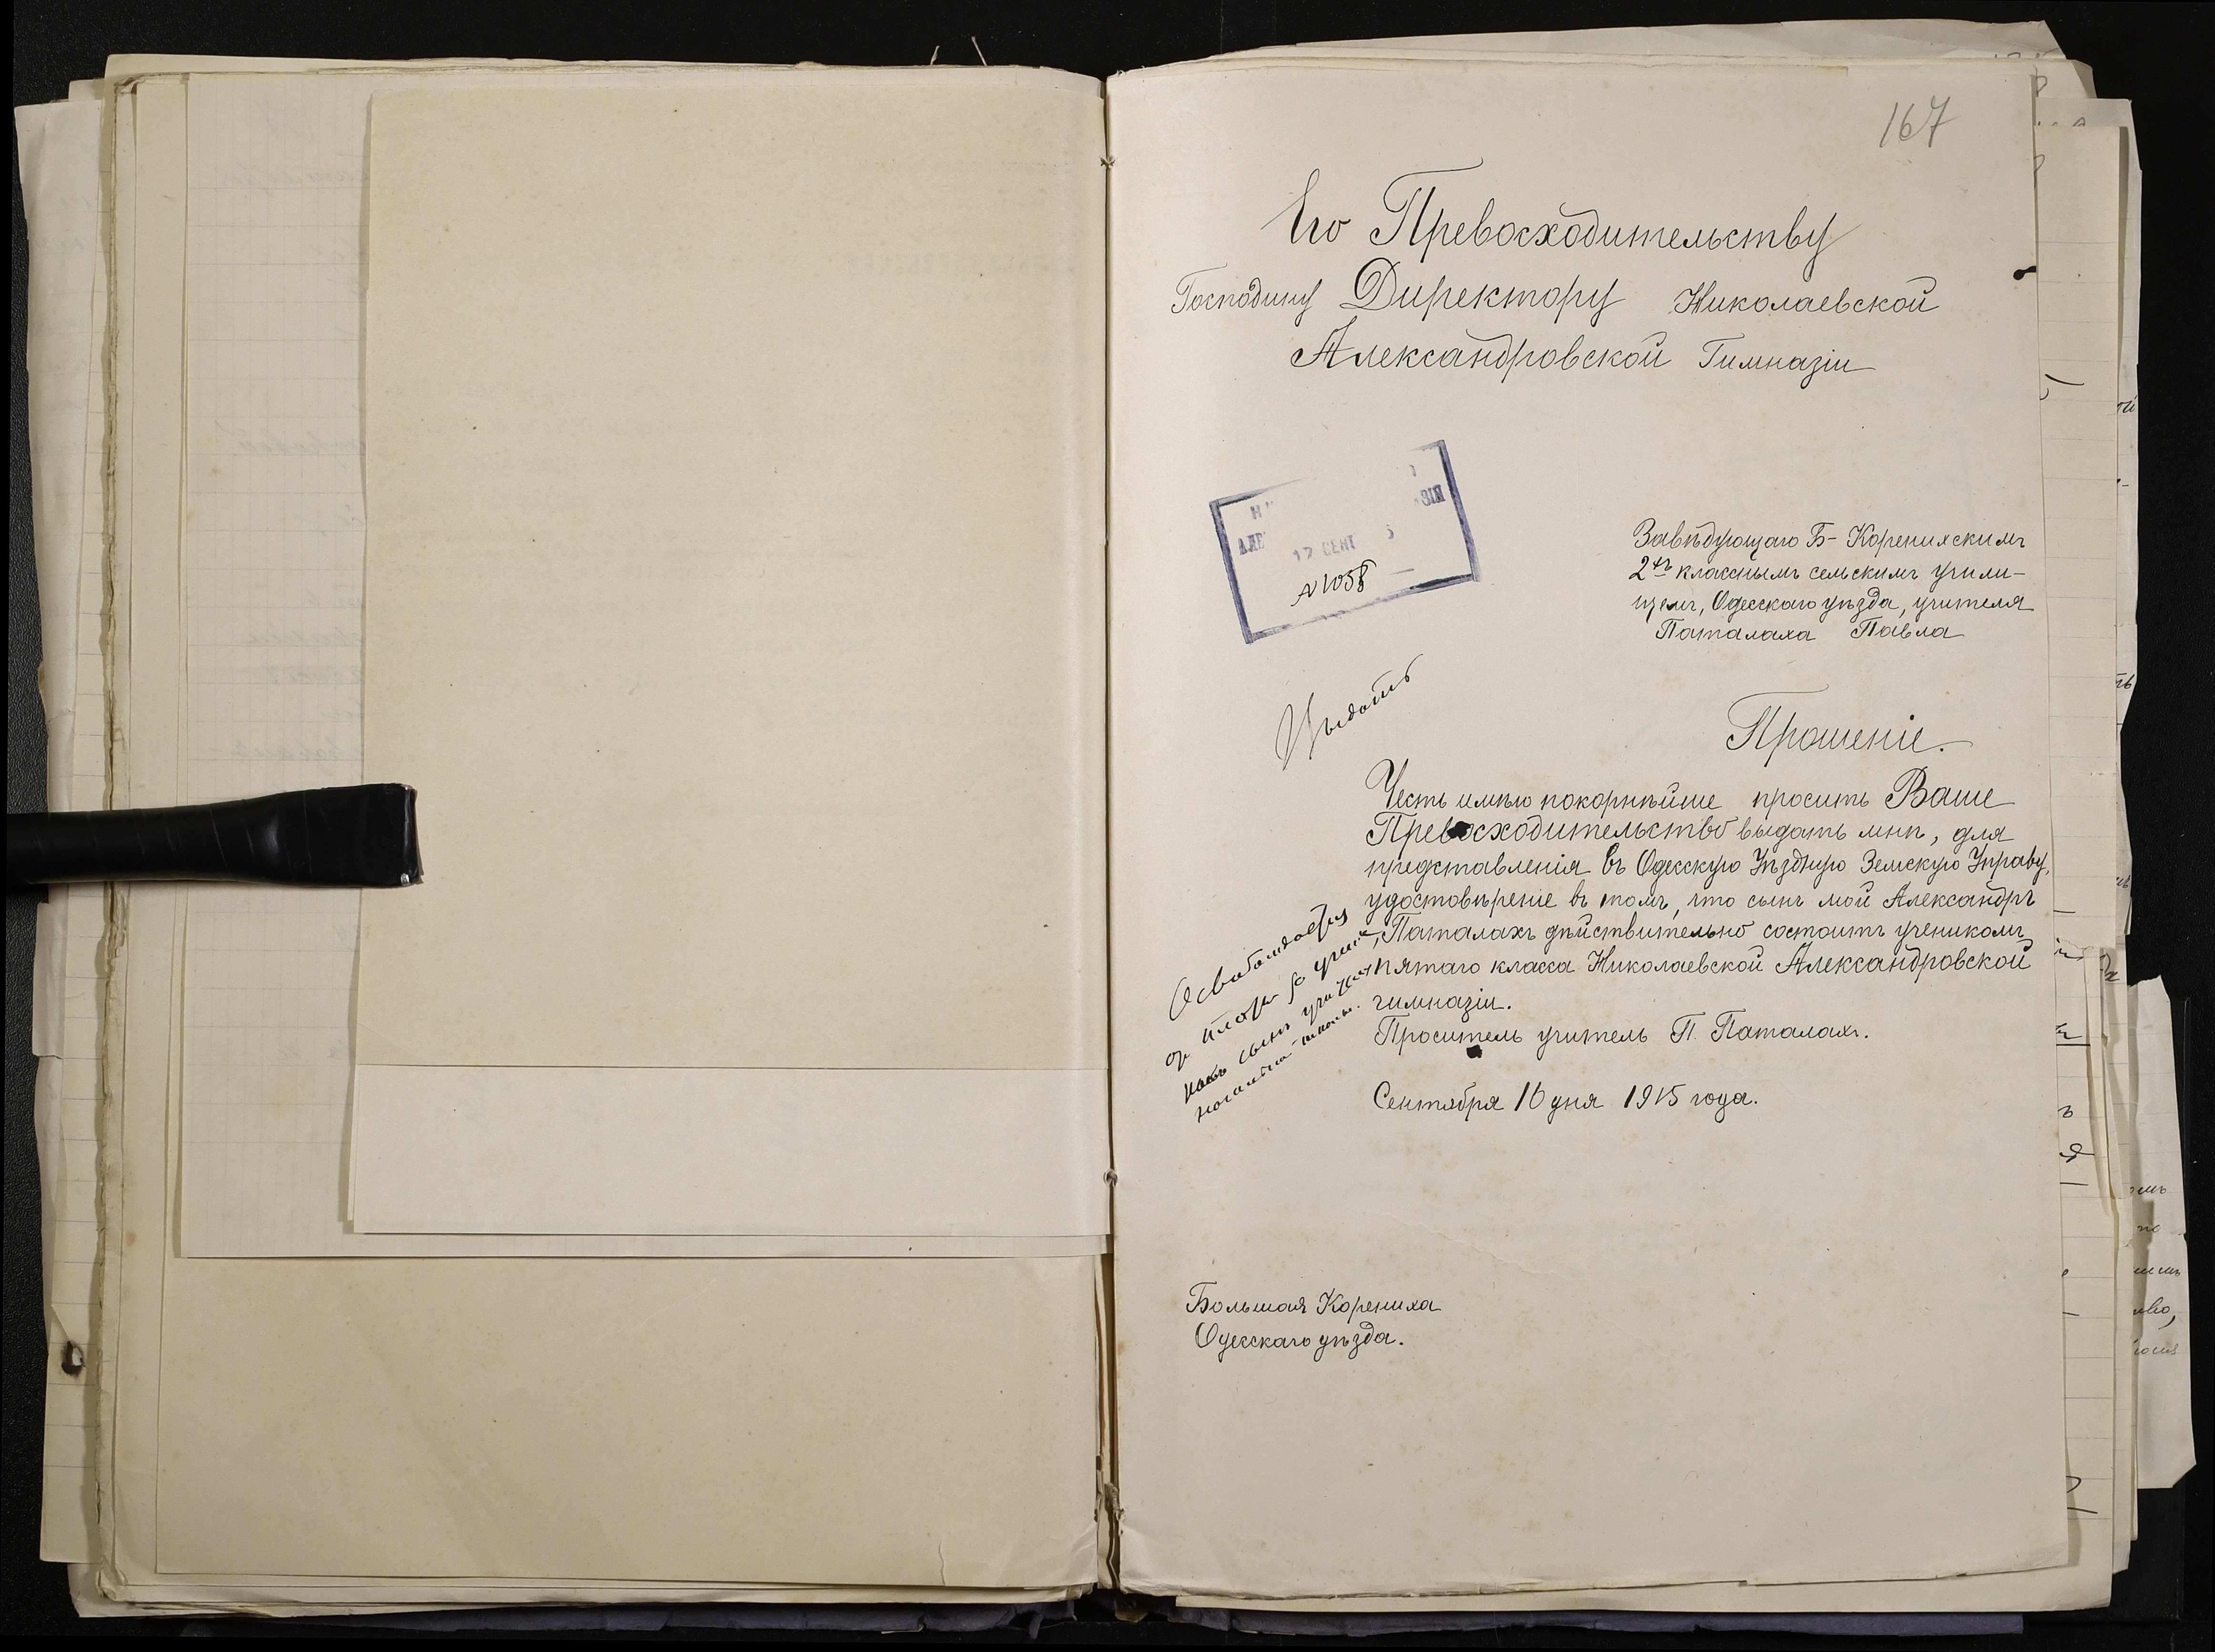 167
Его Превосходительству
Господину Директору Николаевской
Александровской Гимназіи
17 СЕНТ
N 1058
Завѣдующаго Б-Коренихскимъ
2хъ класснымъ сельскимъ учили-
щемъ, Одесскаго уѣзда, учителя
Паталаха Павла
Выдать
Прошеніе.
Честь имѣю покорнѣйше просить Ваше
Превосходительство выдать мнѣ, для
представленія въ Одесскую Уѣздную Земскую Управу,
удостовѣреніе въ томъ, что сынъ мой Александръ
Паталахъ дѣйствительно состоитъ ученикомъ
пятаго класса Николаевской Александровской
гимназіи.
Проситель учитель П. Паталахъ.
Сентября 16 дня 1915 года.
Освобождается
от платы за
какъ сынъ учителя
школы.
Большая Корениха
Одесскаго уѣзда.